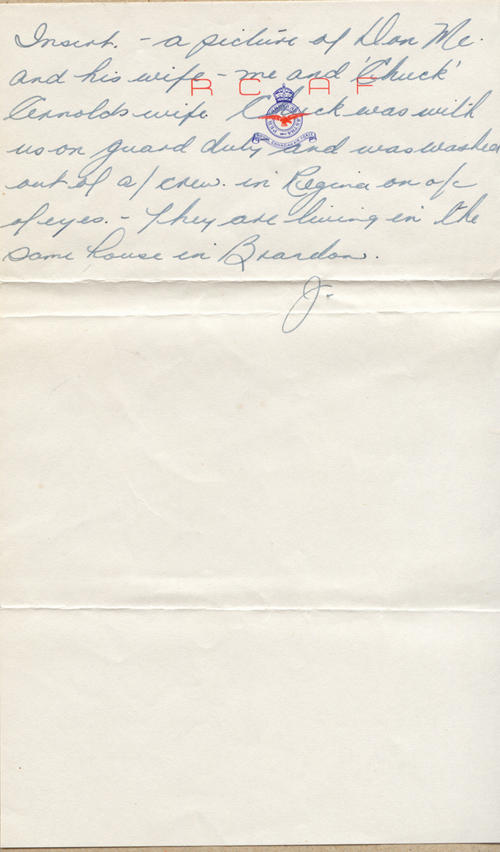 Insert. - a picture of Don Mc.
and his wife - me and 'Chuck'
R C A F
Arnolds wife. Chuck was with
us on guard duty and was washed
out of a/crew. in Regina on a/c
of eyes. - They are living in the
same house in Brandon.
J.